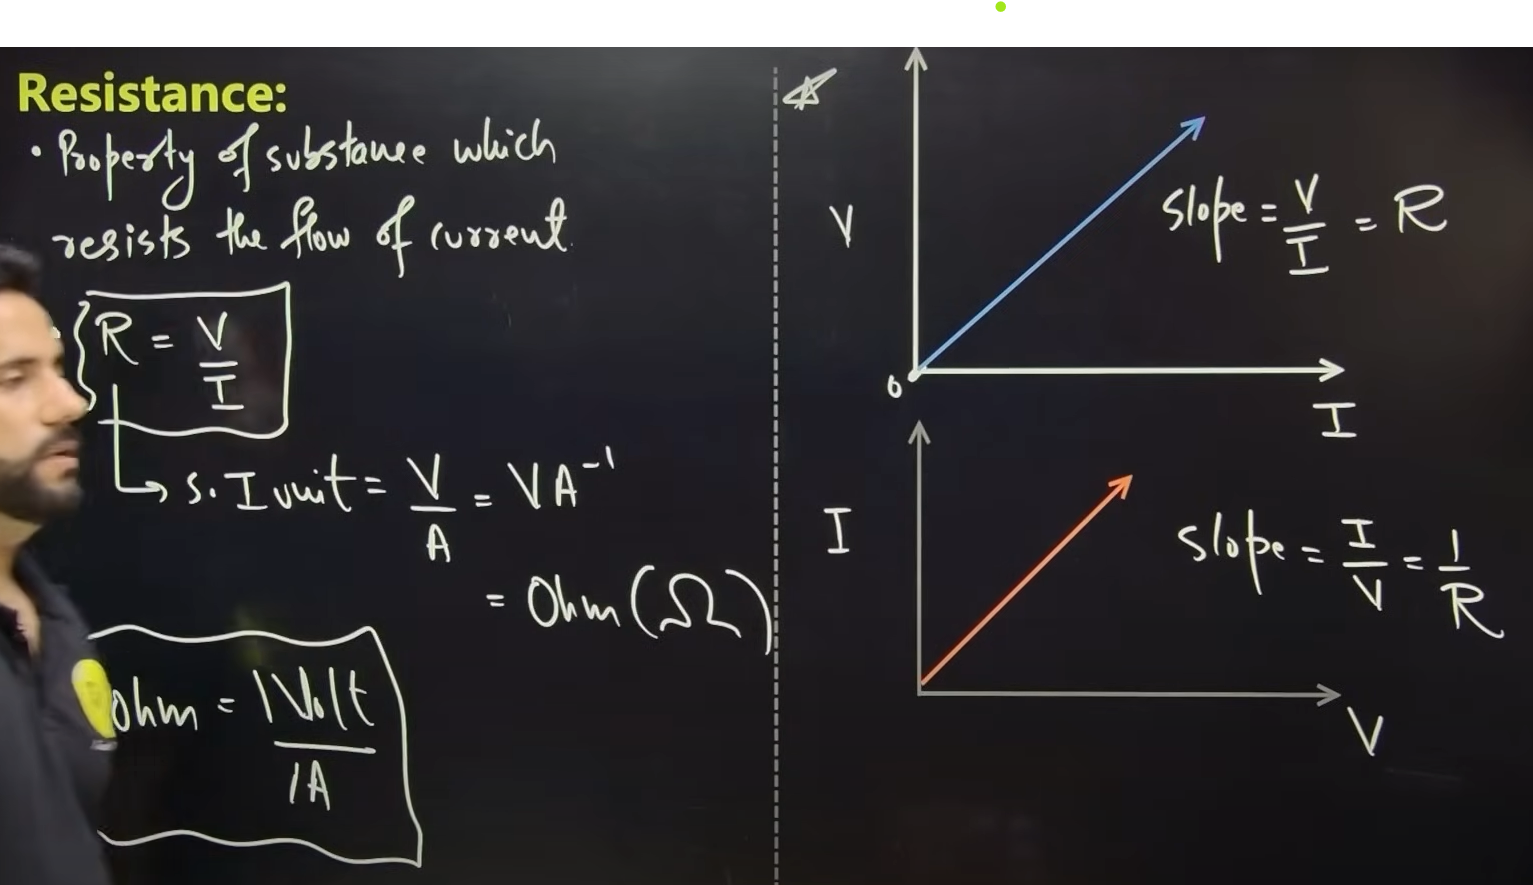 Resistance:
• Property of substance which
resists the flow of current.
R = V/I
S.I unit = V/A = VA⁻¹
= Ohm (Ω)
ohm = 1 Volt/1A
V
slope = V/I = R
0
I
I
slope = I/V = 1/R
V